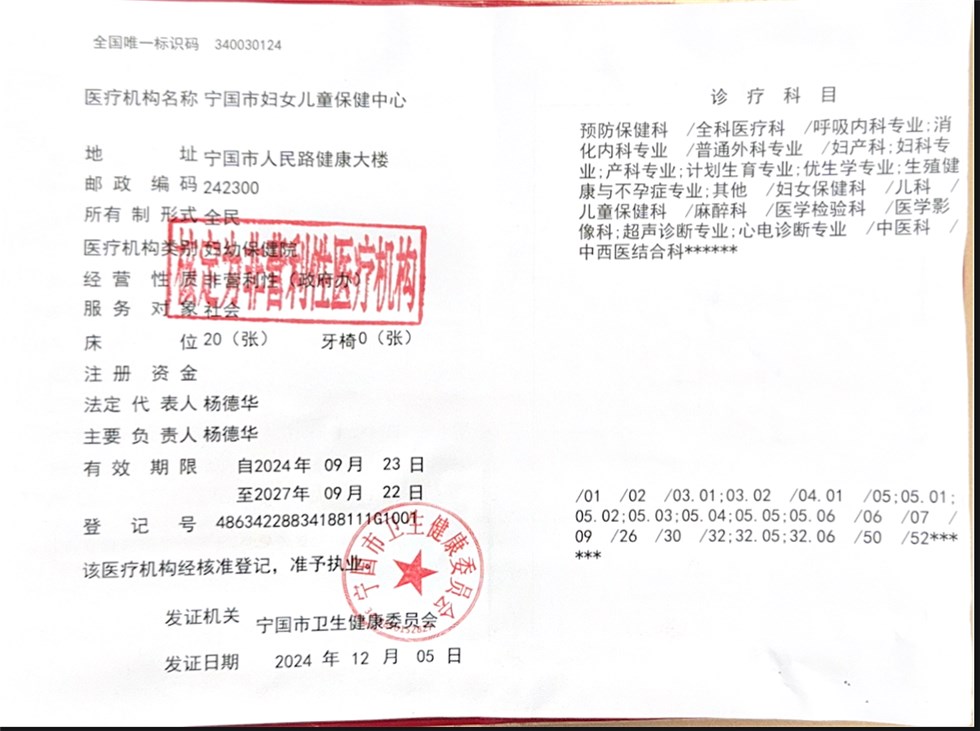 全国唯一标识码 340030124
医疗机构名称 宁国市妇女儿童保健中心
地 址 宁国市人民路健康大楼
邮政编码 242300
所有制形式 全民
医疗机构类别 妇幼保健院
经营性质 非营利性（政府办）
核定为非营利性医疗机构
服务对象 社会
床 位 20（张） 牙椅0（张）
注册资金
法定代表人 杨德华
主要负责人 杨德华
有效期限 自2024年 09月 23日
至2027年 09月 22日
登记号 48634228834188111G1001
该医疗机构经核准登记，准予执业。
宁国市卫生健康委员会
发证机关 宁国市卫生健康委员会
发证日期 2024年 12月 05日
诊疗科目
预防保健科 /全科医疗科 /呼吸内科专业;消
化内科专业 /普通外科专业 /妇产科;妇科专
业;产科专业;计划生育专业;优生学专业;生殖健
康与不孕症专业;其他 /妇女保健科 /儿科 /
儿童保健科 /麻醉科 /医学检验科 /医学影
像科;超声诊断专业;心电诊断专业 /中医科 /
中西医结合科******
/01 /02 /03.01;03.02 /04.01 /05;05.01;
05.02;05.03;05.04;05.05;05.06 /06 /07 /
09 /26 /30 /32;32.05;32.06 /50 /52***
***